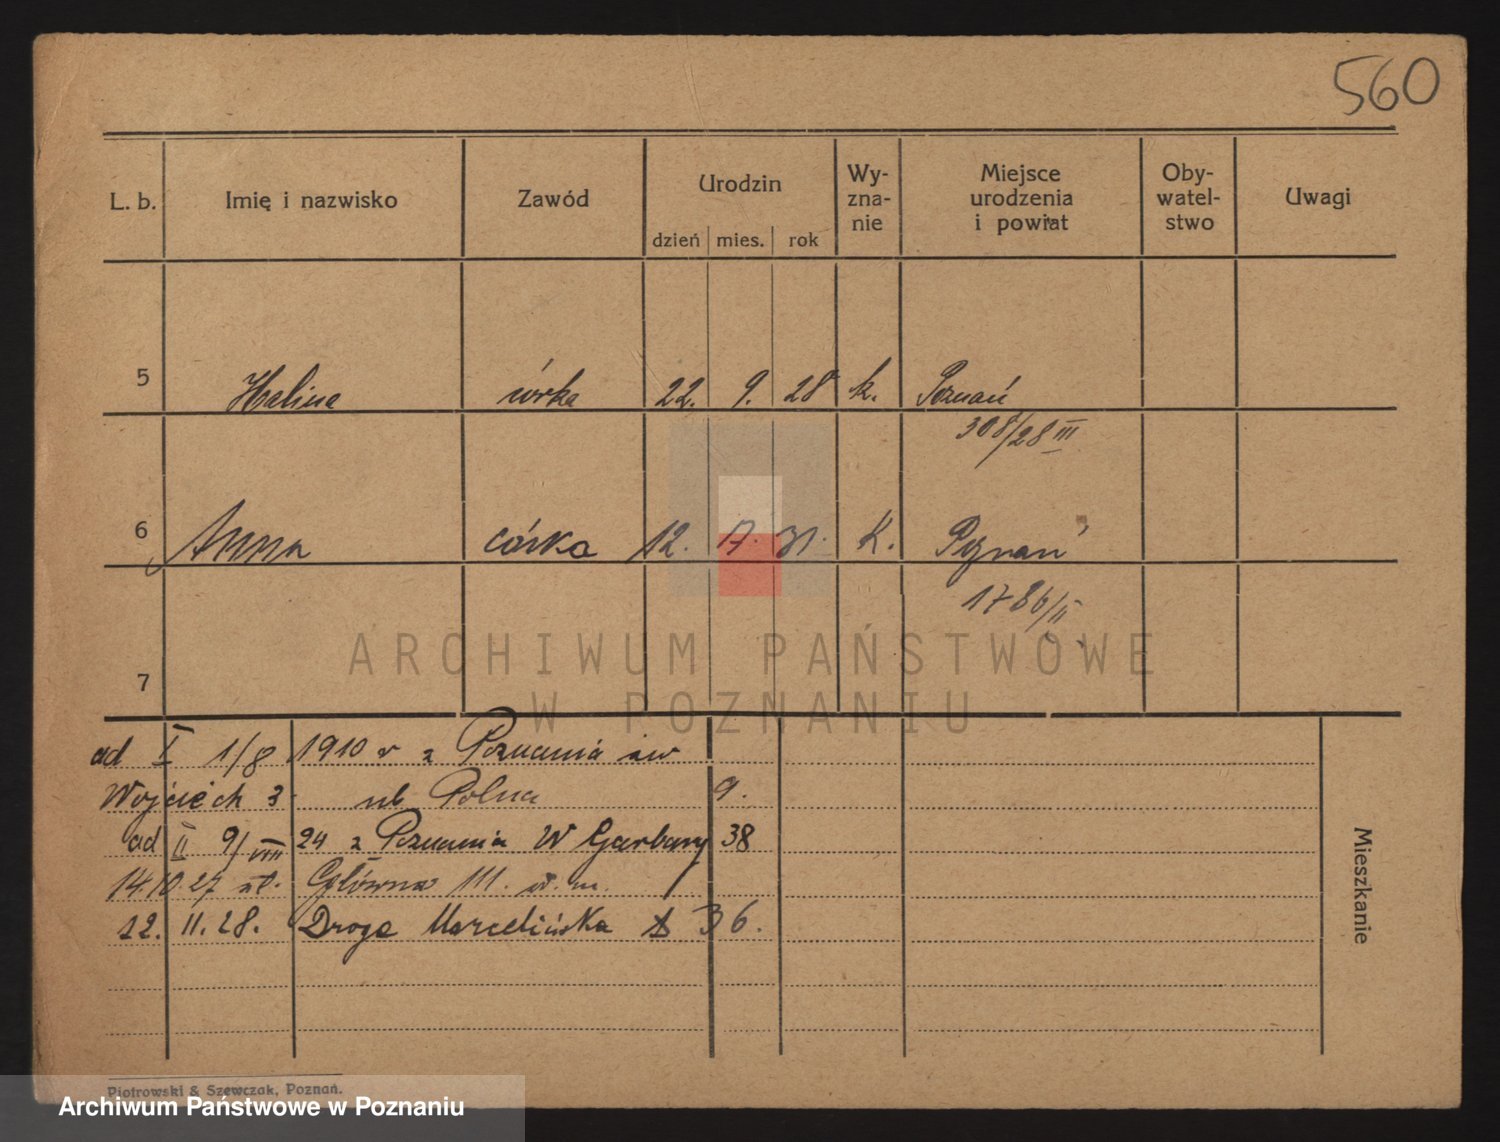 560
L. b. Imię i nazwisko Zawód Urodzin dzień mies. rok Wy-zna-nie Miejsce urodzenia i powiat Oby-watel-stwo Uwagi
5 Halina córka 22. 9. 28 k. Poznań
308/28 III
6 Anna córka 12. 7. 31. K. Poznań
1786/II
7
ARCHIWUM PAŃSTWOWE
W POZNANIU
ad I 1/8 1910 r z Poznania św
Wojciech 3 ul. Polna 9.
ad II 9/VIII 24 z Poznania W Garbary 38
14.10.27 Główna 111.
12. 11. 28. Droga Marcelińska 36.
Mieszkanie
Piotrowski & Szewczak, Poznań.
Archiwum Państwowe w Poznaniu